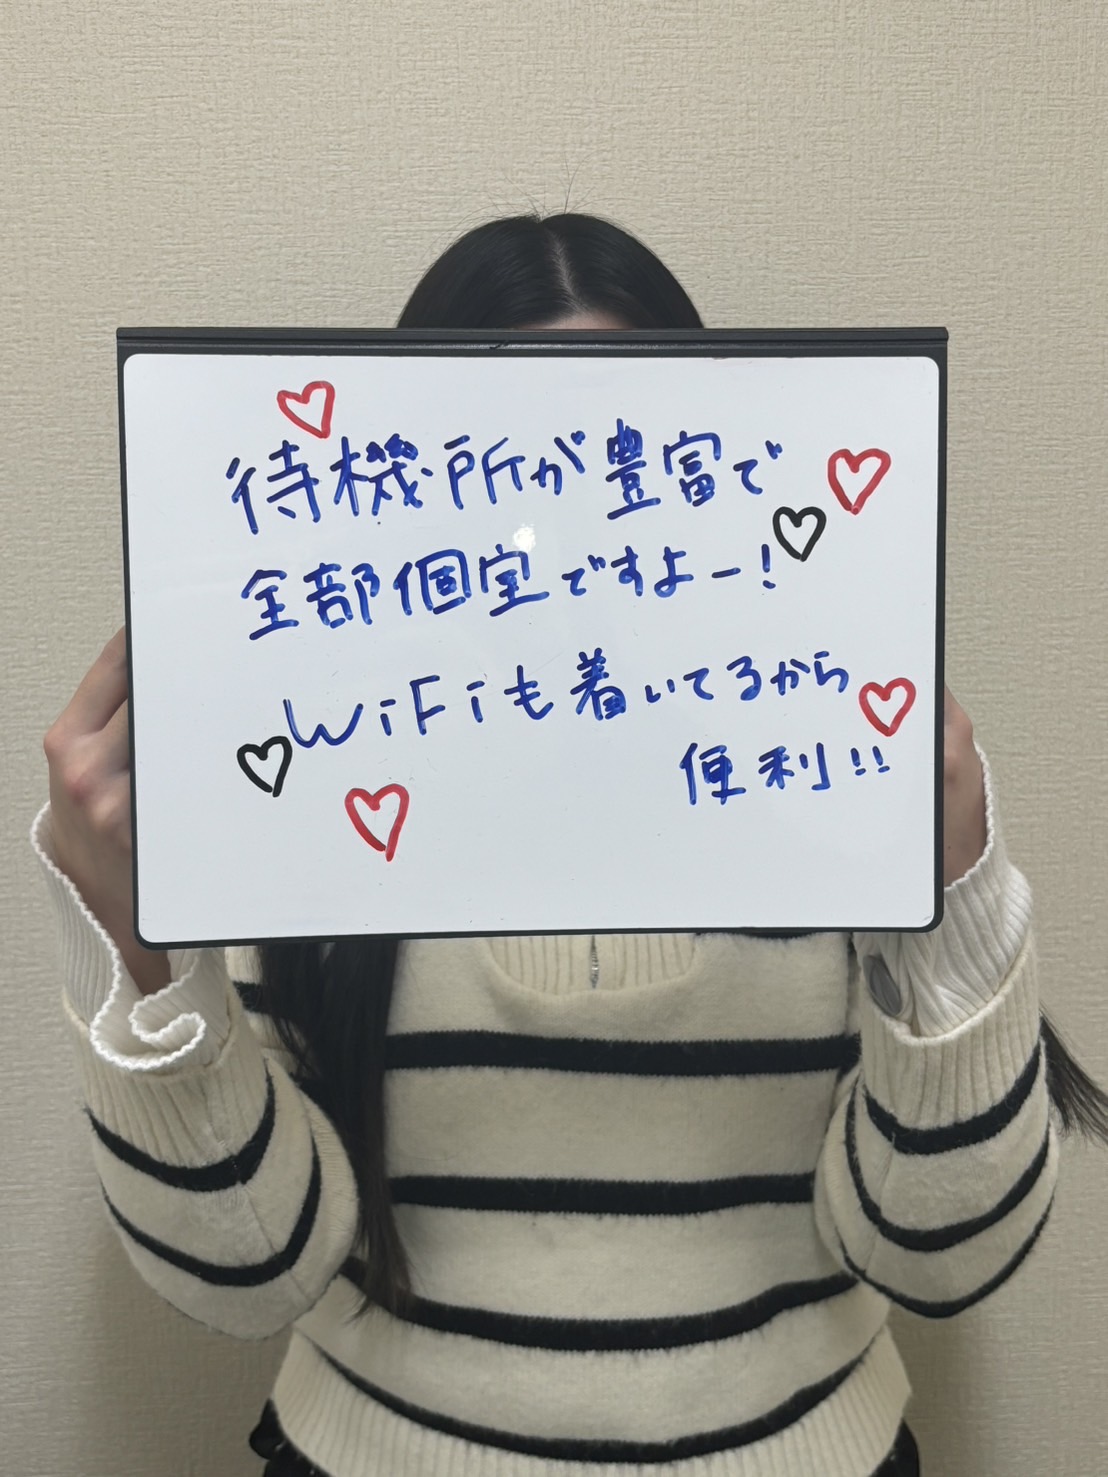 待機所が豊富で
全部個室ですよー!
WiFiも着いてるから
便利!!